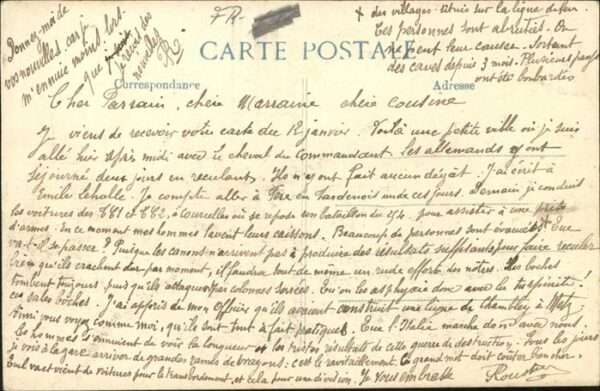 Donnez-moi de
vos nouvelles, car je
m'ennuie moins lors-
que je reçois des
nouvelles
FR.
+ des villages situés sur la ligne de feu.
Ces personnes sont abruties. On
ne peut leur causer. Sortant
des caves depuis 3 mois. Plusieurs pays
ont été bombardés
CARTE POSTALE
Correspondance
Adresse
Cher Parrain, chère Marraine chère cousine
Je viens de recevoir votre carte du 12 janvier. Voilà une petite ville où je suis
allé hier après midi avec le cheval du Commandant. Les allemands y ont
séjourné deux jours en reculant. Ils n'y ont fait aucun dégât. J'ai écrit à
Emile Lehalle. Je compte aller à Fère en Tardenois un de ces jours. Demain je conduit
les voitures des CT1 et CT2, à Courcelles où se repose son bataillon du 54 pour assister à une prise
d'armes. En ce moment mes hommes lavent leurs caissons. Beaucoup de personnes sont évacuées + Que
va-t-il se passer? Puisque les canons n'arrivent pas à produire des résultats suffisants pour faire reculer
Bien qu'ils crachent dur par moment, il faudra tout de même un rude effort des nôtres. Les boches
tombent toujours, puis qu'ils attaquent par colonnes serrées. Qu'on les asphyxie donc avec la turpinite!
ces sales boches. J'ai appris de mon Officier qu'ils avaient construit une ligne de Chambley à Metz
Ainsi vous voyez comme moi, qu'ils sont tout à fait pratiques. Que l'Italie marche donc avec nous.
Les hommes s'ennuient de voir la longueur et les tristes résultats de cette guerre de destruction. Tous les jours
je vois à la gare arriver de grandes rames de wagons: c'est le ravitaillement. Ce grand mot doit coûter bon cher.
Quel va et vient de voitures pour le transbordement et cela pour une division. Je vous embrasse